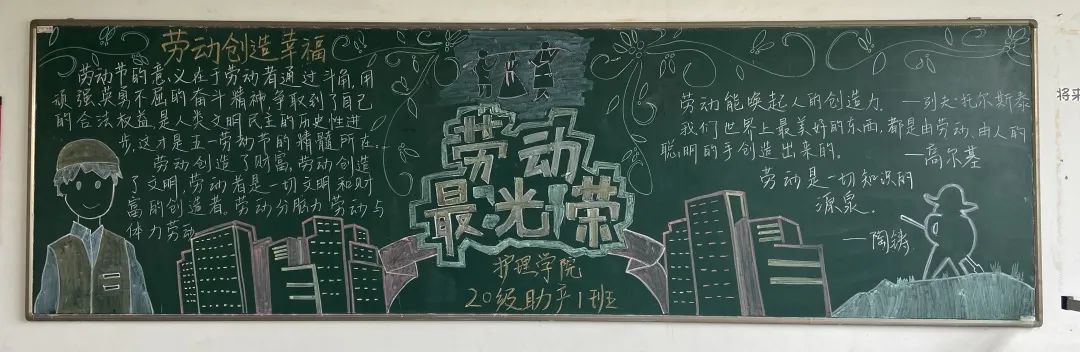 劳动创造幸福
劳动节的意义在于劳动者通过斗角,用
顽强英勇不屈的奋斗精神,争取到了自己
的合法权益,是人类文明民主的历史性进
步,这才是五一劳动节的精髓所在...
劳动创造了财富,劳动创造
了文明,劳动者是一切文明和财
富的创造者,劳动分脑力劳动与
体力劳动
劳动
最光荣
护理学院
20级助产1班
劳动能唤起人的创造力. —列夫·托尔斯泰
我们世界上最美好的东西,都是由劳动、由人的
聪明的手创造出来的. —高尔基
劳动是一切知识的
源泉.
—陶铸
将来